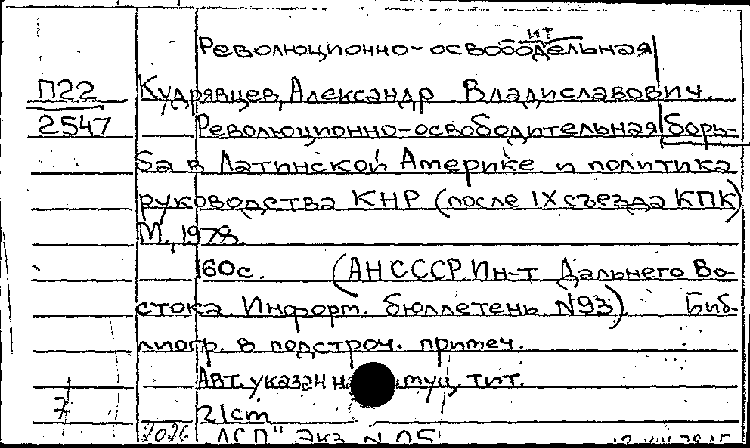 ит
Революционно-освободельная
П22
Кудрявцев, Александр Владиславович.
2547
Революционно-освободительная борь-
ба в Латинской Америке и политика
руководства КНР (после IX съезда КПК)
М., 1978.
160с. (АН СССР. Ин-т Дальнего Во-
стока. Информ. бюллетень №93). Биб-
лиогр. в подстроч. примеч.
Авт. указан на тит.
7
21cm
"ДСП" Экз. N 05